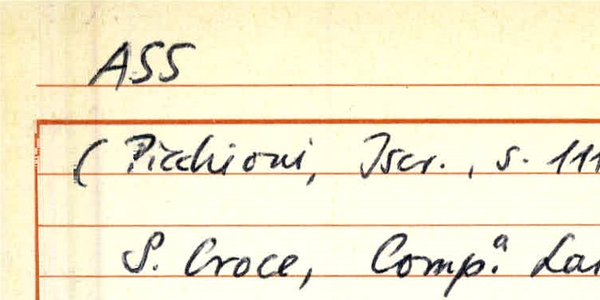 ASS
(Picchioni, Iscr., s. 111
S. Croce, Comp.ª